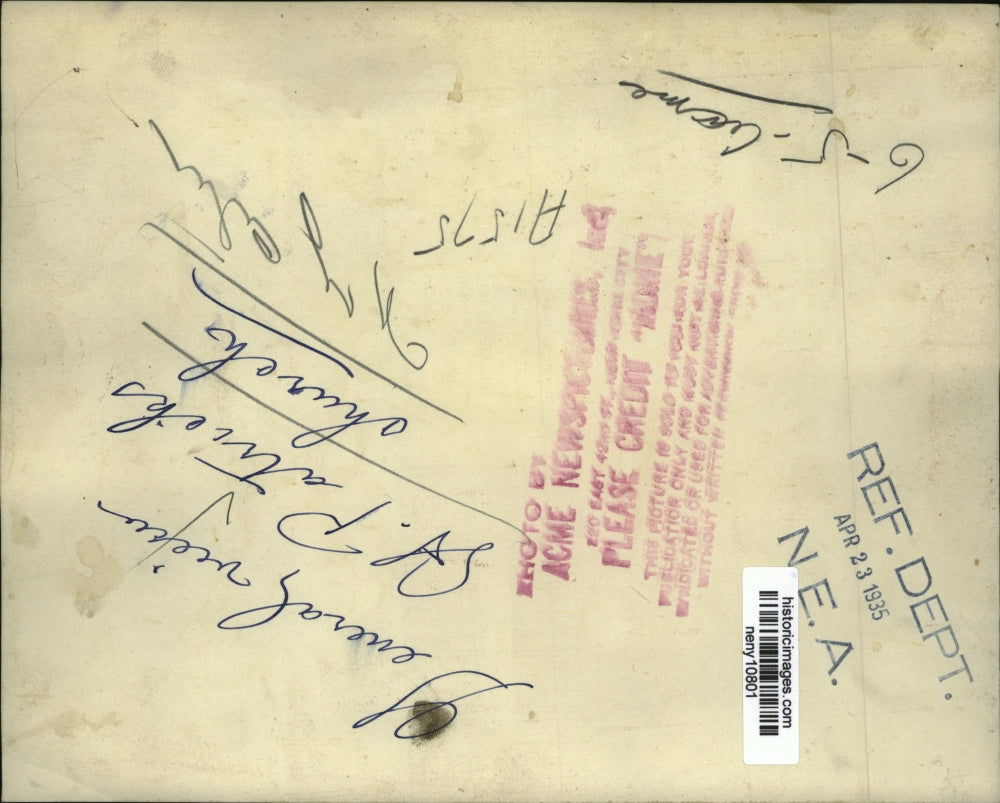 General view
St. Patricks
church
N. Y.
A1575
6-5-Acme
PHOTO BY
ACME NEWSPICTURES, INC.
220 EAST 42ND ST., NEW YORK CITY
PLEASE CREDIT "ACME"
THIS PICTURE IS SOLD TO YOU FOR YOUR
PUBLICATION ONLY AND MUST NOT BE LOANED,
SYNDICATED OR USED FOR ADVERTISING PURPOSES
WITHOUT WRITTEN PERMISSION FROM
REF. DEPT.
APR 23 1935
N. E. A.
historicimages.com
neny10801